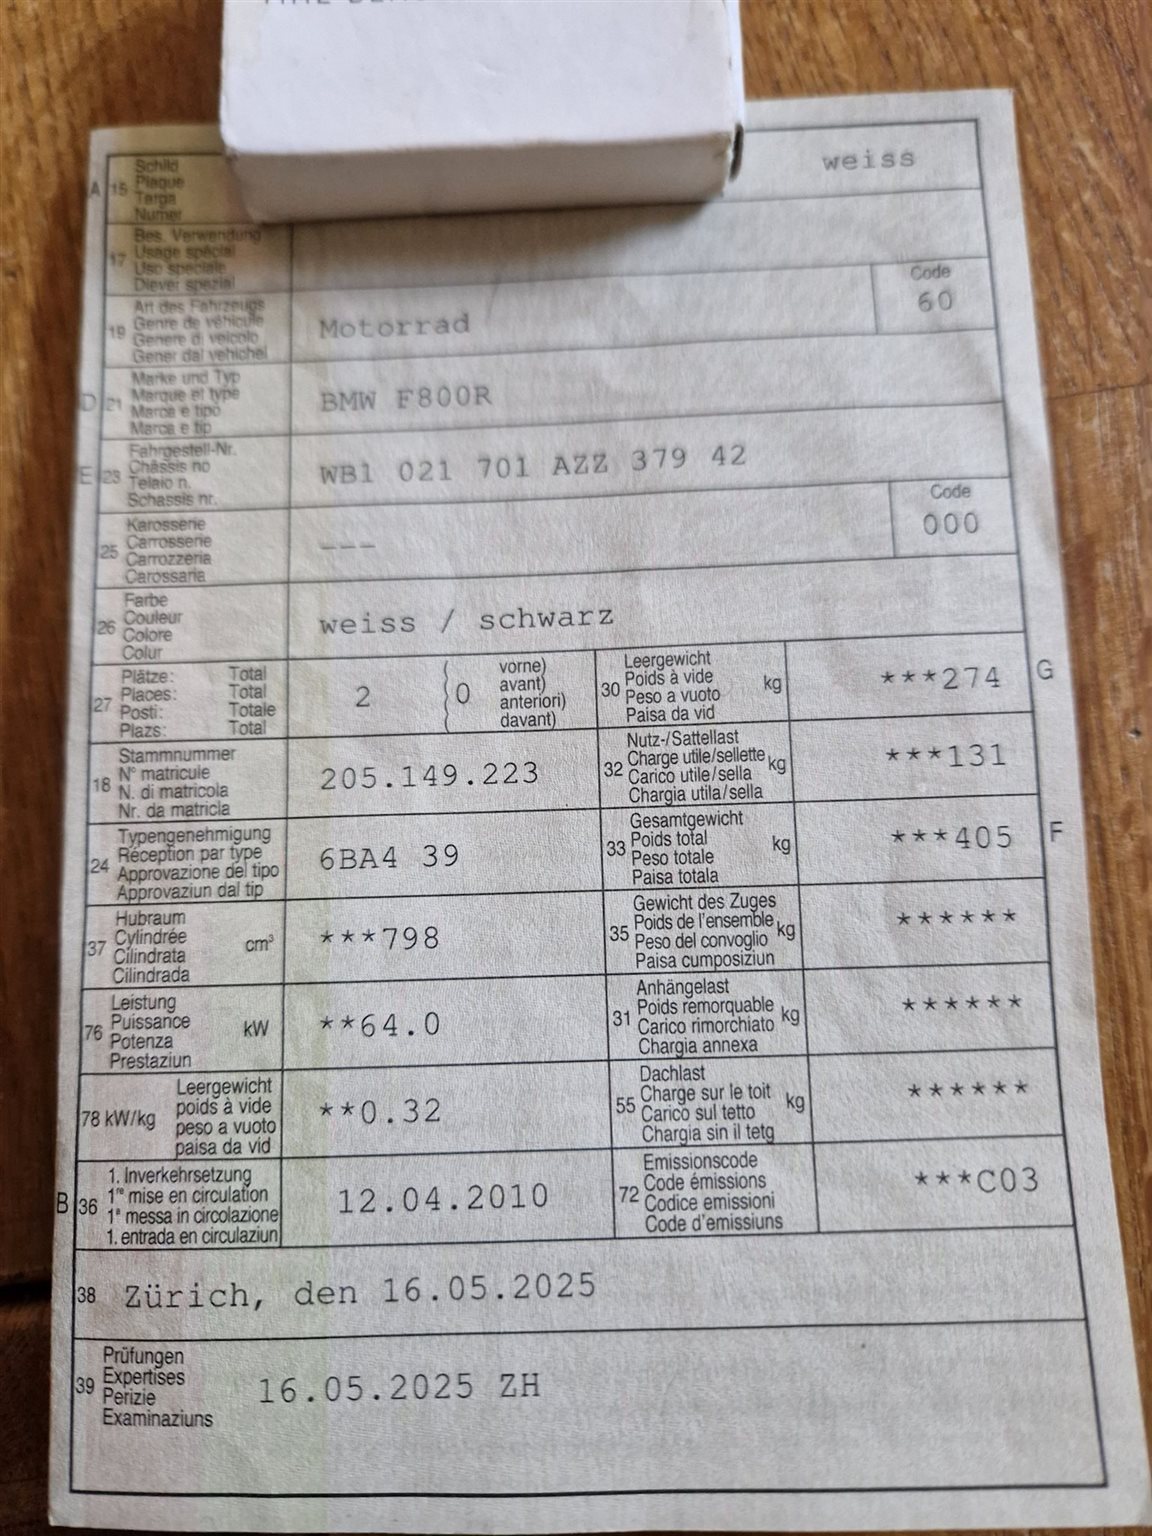 A 15 Schild weiss
Plaque
Targa
Numer
17 Bes. Verwendung
Usage spécial
Uso speciale
Diever spezial
19 Art des Fahrzeugs Code
Genre de véhicule Motorrad 60
Genere di veicolo
Gener dal vehichel
D 21 Marke und Typ
Marque et type BMW F800R
Marca e tipo
Marca e tip
E 23 Fahrgestell-Nr.
Châssis no WB1 021 701 AZZ 379 42
Telaio n.
Schassis nr.
25 Karosserie Code
Carrosserie --- 000
Carrozzeria
Carossaria
26 Farbe
Couleur weiss / schwarz
Colore
Colur
27 Plätze: Total 2 (0 vorne)
Places: Total avant)
Posti: Totale anteriori)
Plazs: Total davant)
30 Leergewicht kg ***274 G
Poids à vide
Peso a vuoto
Paisa da vid
18 Stammnummer 205.149.223
N° matricule
N. di matricola
Nr. da matricla
32 Nutz-/Sattellast kg ***131
Charge utile/sellette
Carico utile/sella
Chargia utila/sella
24 Typengenehmigung 6BA4 39
Réception par type
Approvazione del tipo
Approvaziun dal tip
33 Gesamtgewicht kg ***405 F
Poids total
Peso totale
Paisa totala
37 Hubraum cm³ ***798
Cylindrée
Cilindrata
Cilindrada
35 Gewicht des Zuges kg ******
Poids de l'ensemble
Peso del convoglio
Paisa cumposiziun
76 Leistung kW **64.0
Puissance
Potenza
Prestaziun
31 Anhängelast kg ******
Poids remorquable
Carico rimorchiato
Chargia annexa
78 kW/kg Leergewicht **0.32
poids à vide
peso a vuoto
paisa da vid
55 Dachlast kg ******
Charge sur le toit
Carico sul tetto
Chargia sin il tetg
B 36 1. Inverkehrsetzung 12.04.2010
1re mise en circulation
1a messa in circolazione
1. entrada en circulaziun
72 Emissionscode ***C03
Code émissions
Codice emissioni
Code d'emissiuns
38 Zürich, den 16.05.2025
39 Prüfungen 16.05.2025 ZH
Expertises
Perizie
Examinaziuns